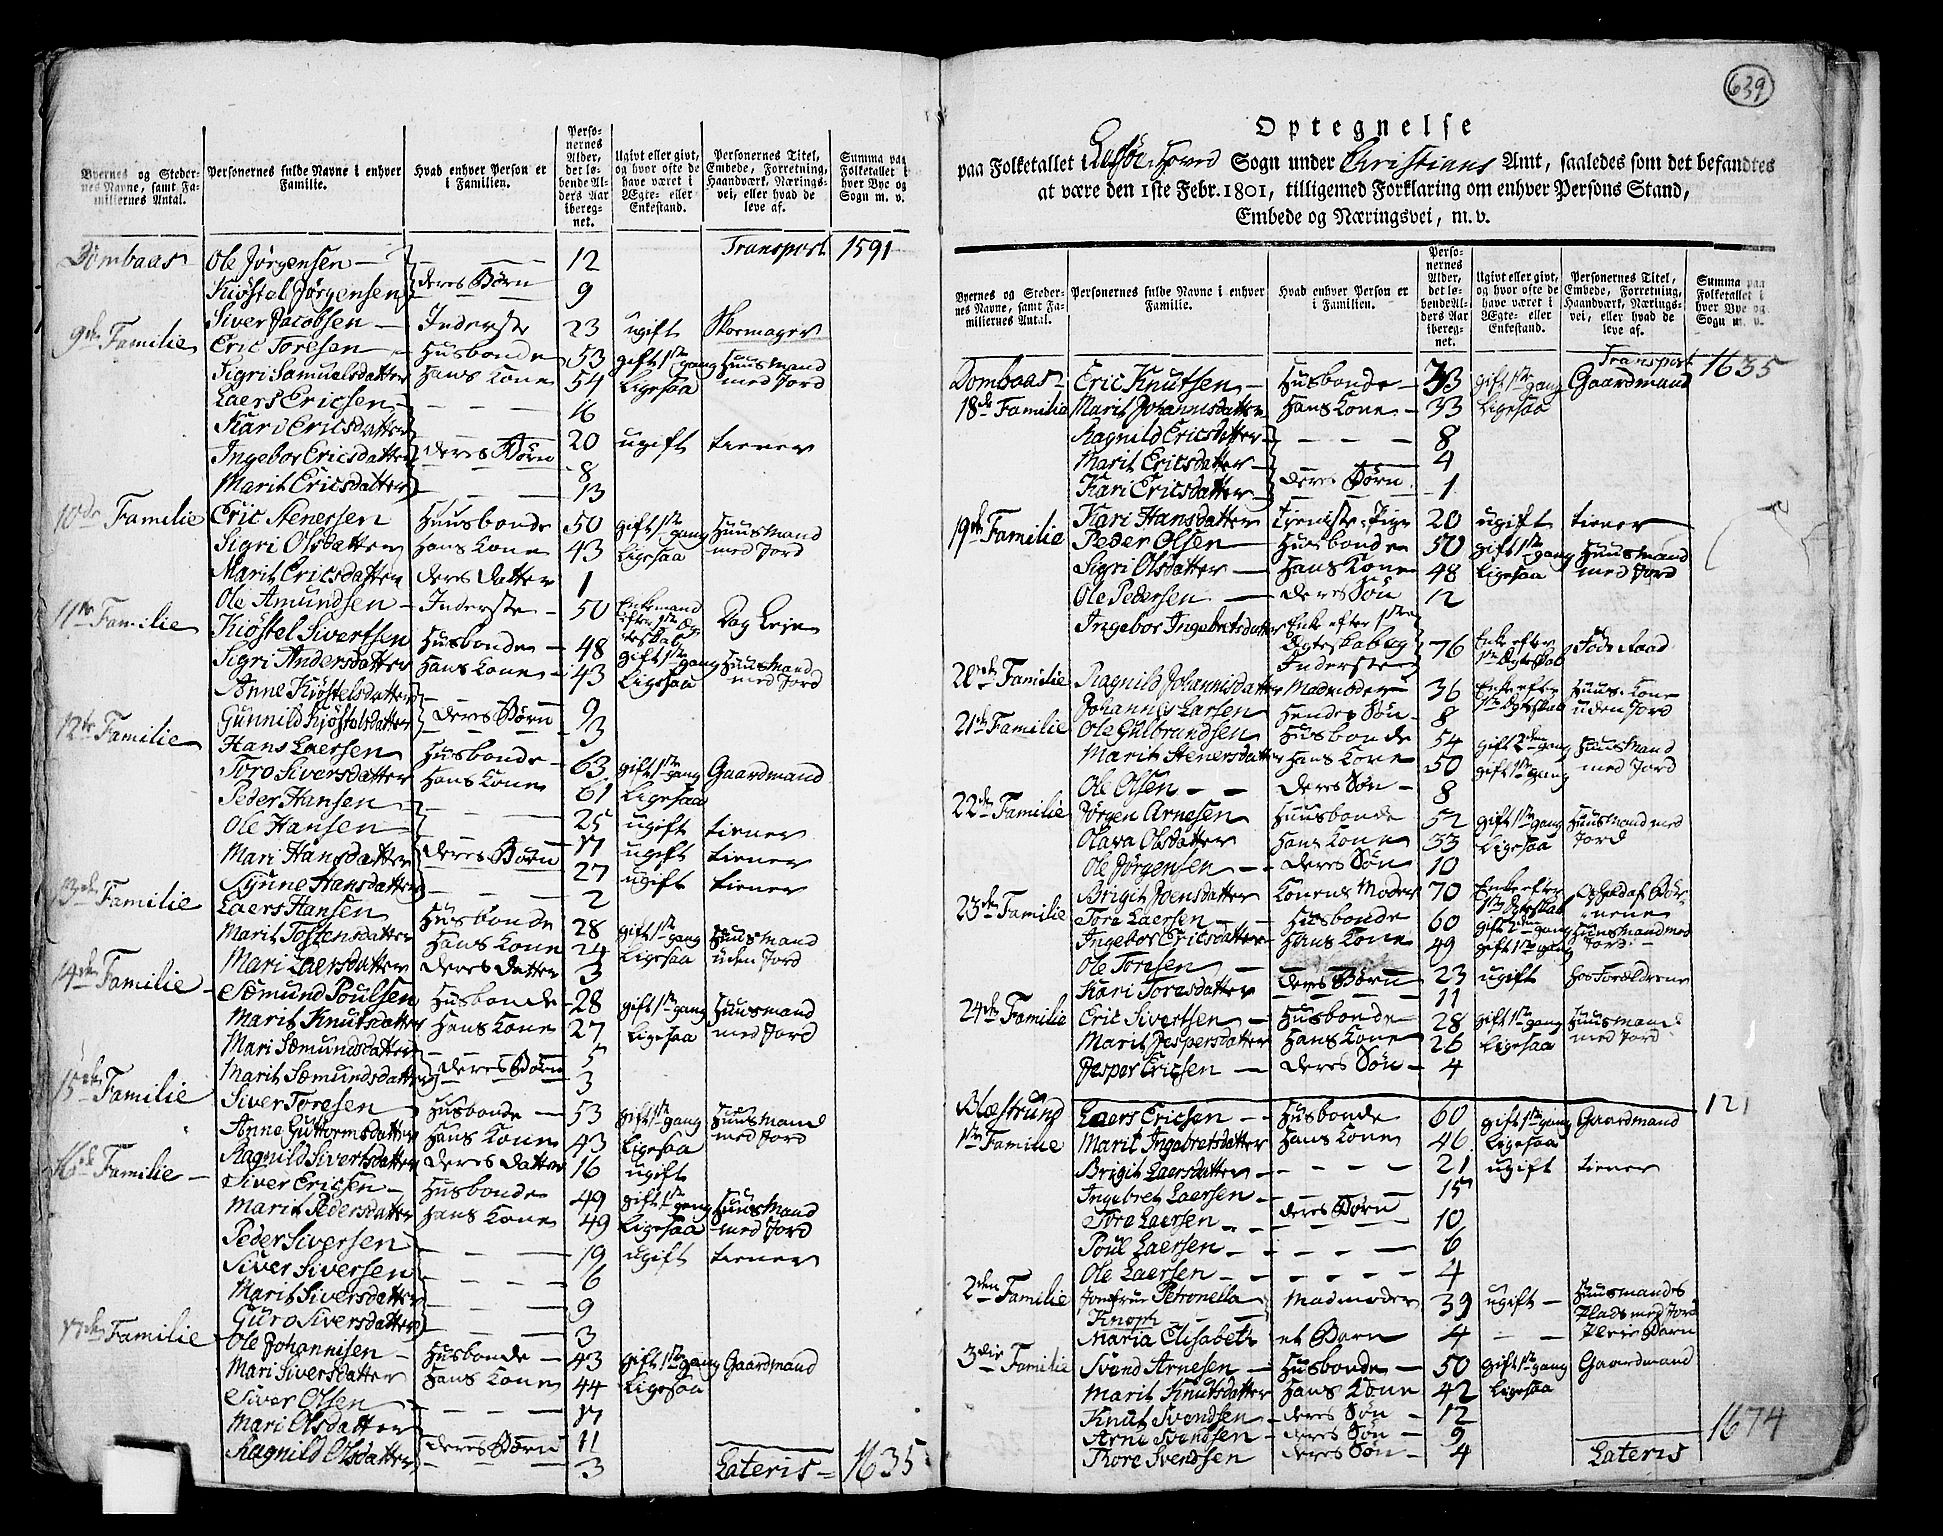 Byernes og Steder-nes Navne, samt Fa-miliernes Antal. | Personernes fulde Navne i enhver Familie. | Hvad enhver Person er i Familien. | Perso-nernes Alder, det lø-bende Al-ders Aar iberegnet. | Ugivt eller givt, og hvor ofte de have været i Ægte- eller Enkestand. | Personernes Titel, Embede, Forretning, Haandværk, Nærings-vei, eller hvad de leve af. | Summa paa Folketallet i hver Bye og Sogn m. v.
Transport 1591
Dombaas Ole Jørgensen 12
Kiøstel Jørgensen deres Børn 9
Siver Jacobsen Inderste 23 ugift Skoemager
9de Familie Eric Toresen Husbonde 53 gift 1ste gang Huusmand
Sigri Samuelsdatter Hans Kone 54 Ligesaa med Jord
Laers Ericsen 16
Kari Ericsdatter 20 ugift tiener
Ingebor Ericsdatter deres Børn 8
Marit Ericsdatter 13
10de Familie Eric Stenersen Huusbonde 50 gift 1ste gang Huusmand
Sigri Olsdatter Hans Kone 43 Ligesaa med Jord
Marit Ericsdatter deres datter 1
Ole Amundsen Inderste 50 Enkemand efter 1ste Ægteskab Dag Leje
11te Familie Kiøstel Sivertsen Husbonde 48 gift 1ste gang Huusmand
Sigri Andersdatter Hans Kone 43 Ligesaa med Jord
Anne Kiøstelsdatter 9
Gunnild Kiøstelsdatter deres Børn 3
12te Familie Hans Laersen Husbonde 63 gift 1ste gang Gaardmand
Toro Siversdatter Hans Kone 61 Ligesaa
Peder Hansen 25 ugift tiener
Ole Hansen 17 ugift tiener
Mari Hansdatter deres Børn 27 ugift tiener
Synne Hansdatter 2
13de Familie Laers Hansen Husbonde 28 gift 1ste gang Huusmand
Marit Tostensdatter Hans Kone 24 Ligesaa uden Jord
Mari Laersdatter deres datter 3
14de Familie Sæmund Poulsen Husbonde 28 gift 1ste gang Huusmand
Marit Knutsdatter Hans Kone 27 Ligesaa med Jord
Mari Sæmundsdatter 5
Marit Sæmundsdatter deres Børn 3
15de Familie Siver Toresen Husbonde 53 gift 1ste gang Huusmand
Anne Guttormsdatter Hans Kone 43 Ligesaa med Jord
Ragnild Sivertsdatter deres datter 16 ugift
16de Familie Siver Ericsen Husbonde 49 gift 1ste gang Huusmand
Marit Pedersdatter Hans Kone 49 Ligesaa med Jord
Peder Siversen 19 ugift tiener
Siver Siversen 6
Marit Siversdatter 9
Guro Siversdatter 3
17de Familie Ole Johannisen Husbonde 43 gift 1ste gang Gaardmand
Mari Siversdatter Hans Kone 44 Ligesaa
Siver Olsen 17
Mari Olsdatter deres Børn 11
Ragnild Olsdatter 3
Lateris 1635
639
Optegnelse
paa Folketallet i Lesøe Hoved Sogn under Christians Amt, saaledes som det befandtes
at være den 1ste Febr. 1801, tilligemed Forklaring om enhver Persons Stand,
Embede og Næringsvei, m. v.
Byernes og Steder-nes Navne, samt Fa-miliernes Antal. | Personernes fulde Navne i enhver Familie. | Hvad enhver Person er i Familien. | Perso-nernes Alder, det lø-bende Al-ders Aar iberegnet. | Ugivt eller givt, og hvor ofte de have været i Ægte- eller Enkestand. | Personernes Titel, Embede, Forretning, Haandværk, Nærings-vei, eller hvad de leve af. | Summa paa Folketallet i hver Bye og Sogn m. v.
Transport 1635
Dombaas Eric Knutsen Husbonde 33 gift 1ste gang Gaardmand
18de Familie Marit Johannisdatter Hans Kone 33 Ligesaa
Ragnild Ericsdatter 8
Marit Ericsdatter 4
Kari Ericsdatter deres Børn 1
Kari Hansdatter Tjeniste Pige 20 ugift tiener
19de Familie Peder Olsen Husbonde 50 gift 1ste gang Huusmand
Sigri Olsdatter Hans Kone 48 Ligesaa med Jord
Ole Pedersen deres Søn 12
Ingebor Ingebretsdatter Enke efter 1ste Ægteskab og Inderste 76 Enke efter 1ste Ægteskab Føde Raad
20de Familie Ragnild Johannisdatter Madmoder 36 Enke efter 1ste Ægteskab Huus-Kone
Johannis Larsen Hendes Søn 8 uden Jord
21de Familie Ole Gulbrandsen Husbonde 54 gift 2den gang Huusmand
Marit Stenersdatter Hans Kone 50 gift 1ste gang med Jord
Ole Olsen deres Søn 8
22de Familie Jørgen Arnesen Huusbonde 52 gift 1ste gang Huusmand med
Olava Olsdatter Hans Kone 33 Ligesaa Jord
Ole Jørgensen deres Søn 10
Brigit Joensdatter Konens Moder 70 Enke efter 1ste Ægteskab
23de Familie Tore Laersen Husbonde 60 gift 2den gang Huusmand med
Ingebor Ericsdatter Hans Kone 49 gift 1ste gang Jord
Ole Toresen 23 ugift hos Forældrene
Kari Toresdatter deres Børn 11
24de Familie Eric Sivertsen Husbonde 28 gift 1ste gang Huusmand
Marit Jespersdatter Hans Kone 26 Ligesaa med Jord
Jesper Ericsen deres Søn 4
121
Blæstrund Laers Ericsen Husbonde 60 gift 1ste gang Gaardmand
1ste Familie Marit Ingebretsdatter Hans Kone 46 Ligesaa
Brigit Laersdatter 21 ugift tiener
Ingebret Laersen 15
Tore Laersen deres Børn 10
Poul Laersen 6
Ole Laersen 4
2den Familie Jomfrue Petronella Knoph Madmoder 39 ugift Huusmandes Plads med Jord
Maria Elisabeth et Barn 4 Pleie Barn
3die Familie Svend Arnesen Husbonde 50 gift 1ste gang Gaardmand
Marit Knutsdatter Hans Kone 42 Ligesaa
Knut Svendsen deres Søn 12
Arne Svendsen deres Søn 9
Thore Svendsen deres Søn 4
Lateris 1674